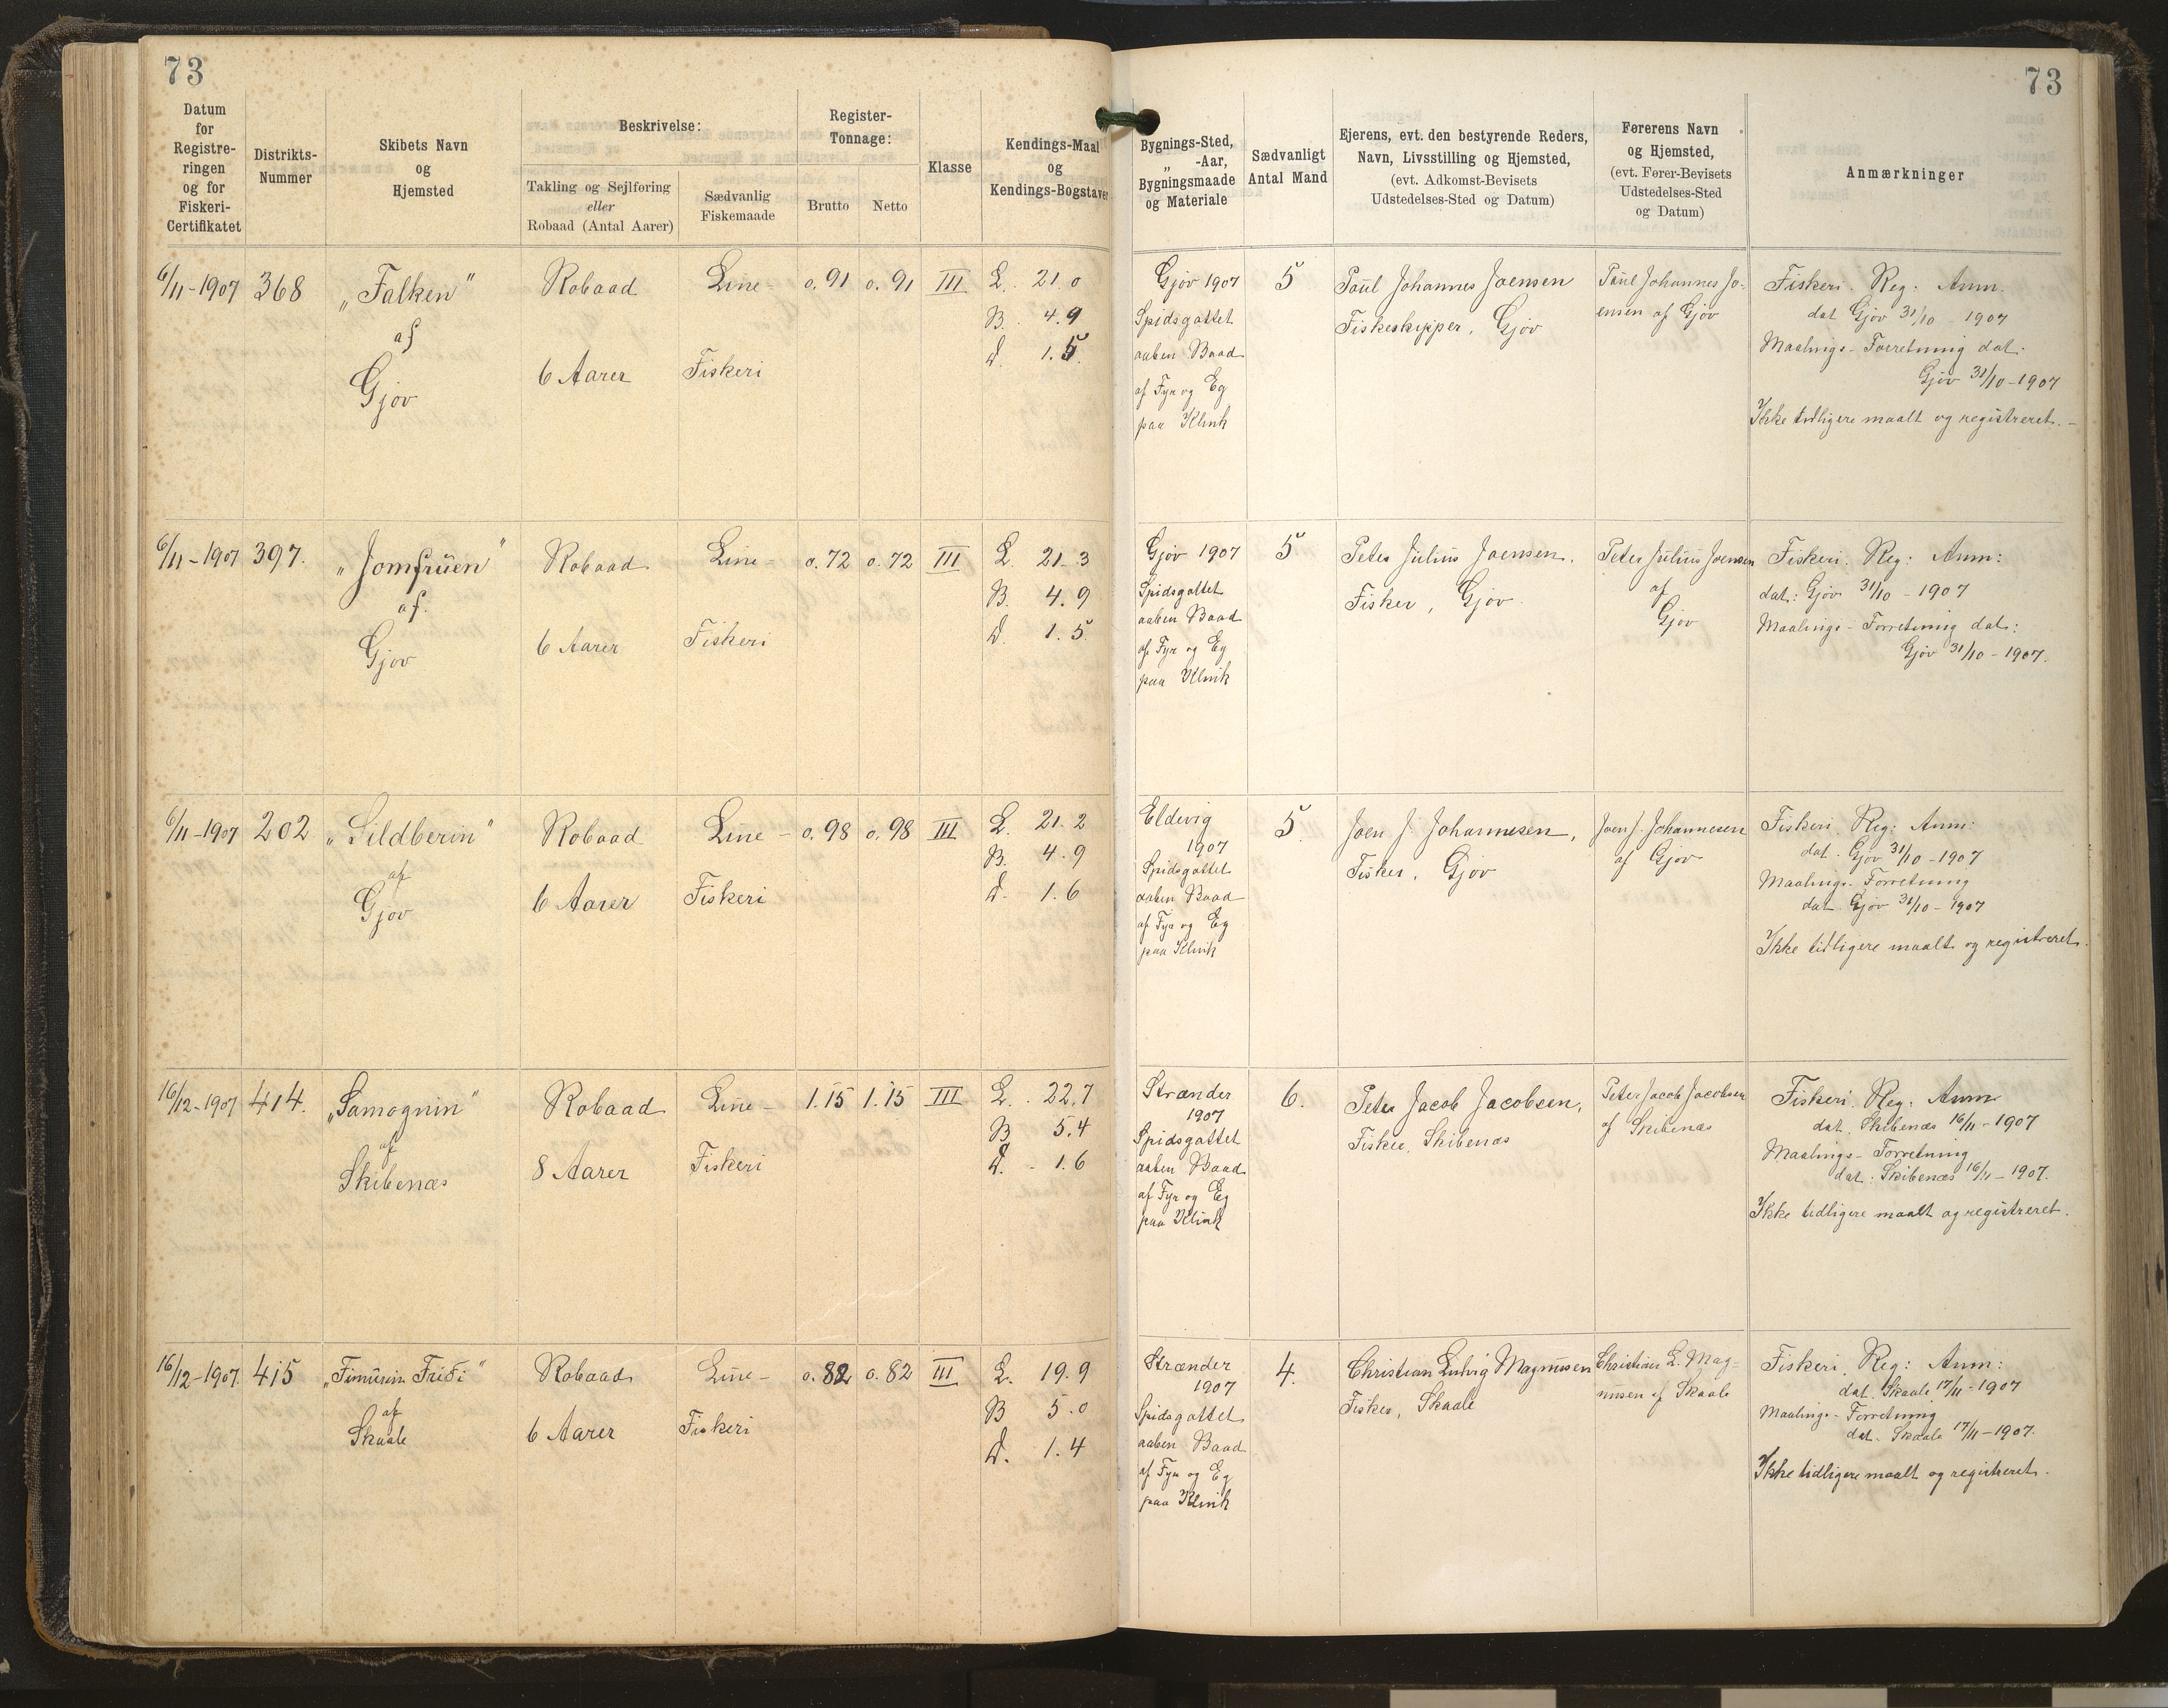 73
73
Datum for Registreringen og for Fiskeri-Certifikatet
Distrikts-Nummer
Skibets Navn og Hjemsted
Beskrivelse:
Takling og Sejlføring eller Robaad (Antal Aarer)
Sædvanlig Fiskemaade
Register-Tonnage:
Brutto
Netto
Klasse
Kendings-Maal og Kendings-Bogstaver
Bygnings-Sted, „ -Aar, Bygningsmaade og Materiale
Sædvanligt Antal Mand
Ejerens, evt. den bestyrende Reders, Navn, Livsstilling og Hjemsted, (evt. Adkomst-Bevisets Udstedelses-Sted og Datum)
Førerens Navn og Hjemsted, (evt. Fører-Bevisets Udstedelses-Sted og Datum)
Anmærkninger
6/11-1907 368 „Falken" af Gjov
Robaad 6 Aarer
Line- Fiskeri
0.91 0.91 III
L. 21.0
B. 4.9
D. 1.5.
Gjov 1907
Spidsgattet
aaben Baad
af Fyr og Eg
paa Klink
5
Paul Johannes Joensen
Fiskeskipper, Gjov
Paul Johannes Jo-
ensen af Gjov
Fiskeri. Reg: Anm.
dat Gjov 31/10 - 1907
Maalings-Forretning dat.
Gjov 31/10-1907
Ikke tidligere maalt og registreret.-
6/11-1907 397. „Jomfruen" af. Gjov
Robaad 6 Aarer
Line- Fiskeri
0.72 0.72 III
L. 21.3
B. 4.9
D. 1.5.
Gjov 1907
Spidsgattet
aaben Baad
af Fyr og Eg
paa Klink
5
Peter Julius Joensen.
Fisker, Gjov.
Peter Julius Joensen
af
Gjov
Fiskeri. Reg: Anm:
dat: Gjov 31/10 - 1907
Maalings-Forretning dat:
Gjov 31/10-1907.
6/11-1907 202 „Sildberin" af Gjov
Robaad 6 Aarer
Line- Fiskeri
0.98 0.98 III
L. 21.2
B. 4.9
D. 1.6
Eldevig
1907
Spidsgattet
aaben Baad
af Fyr og Eg
paa Klink
5
Joen J. Johannesen,
Fisker, Gjov
Joen J. Johannesen
af Gjov
Fiskeri. Reg: Anm:
dat. Gjov 31/10-1907
Maalings-Forretning
dat. Gjov 31/10-1907
Ikke tidligere maalt og registreret.
16/12-1907 414. „Samognin" af Skibenæs
Robaad 8 Aarer
Line- Fiskeri
1.15 1.15 III
L. 22.7
B 5.4
D. 1.6
Strænder
1907
Spidsgattet
aaben Baad
af Fyr og Eg
paa Klink
6.
Peter Jacob Jacobsen,
Fisker, Skibenæs
Peter Jacob Jacobsen
af Skibenæs
Fiskeri. Reg: Anm
dat. Skibenæs 16/11-1907
Maalings-Forretning
dat: Skibenæs 16/11-1907.
Ikke tidligere maalt og registreret.
16/12-1907. 415 af Skaale
Robaad 6 Aarer
Line- Fiskeri
0.82 0.82 III
L. 19.9
B 5.0
D. 1.4
Strænder
1907
Spidsgattet
aaben Baad
af Fyr og Eg
paa Klink
4.
Christian Ludvig Magnussen
Fisker, Skaale
Christian L. Mag-
nusen af Skaale
Fiskeri. Reg: Anm:
dat. Skaale 17/11-1907
Maalings-Forretning
dat. Skaale 17/11-1907.
Ikke tidligere maalt og registreret.